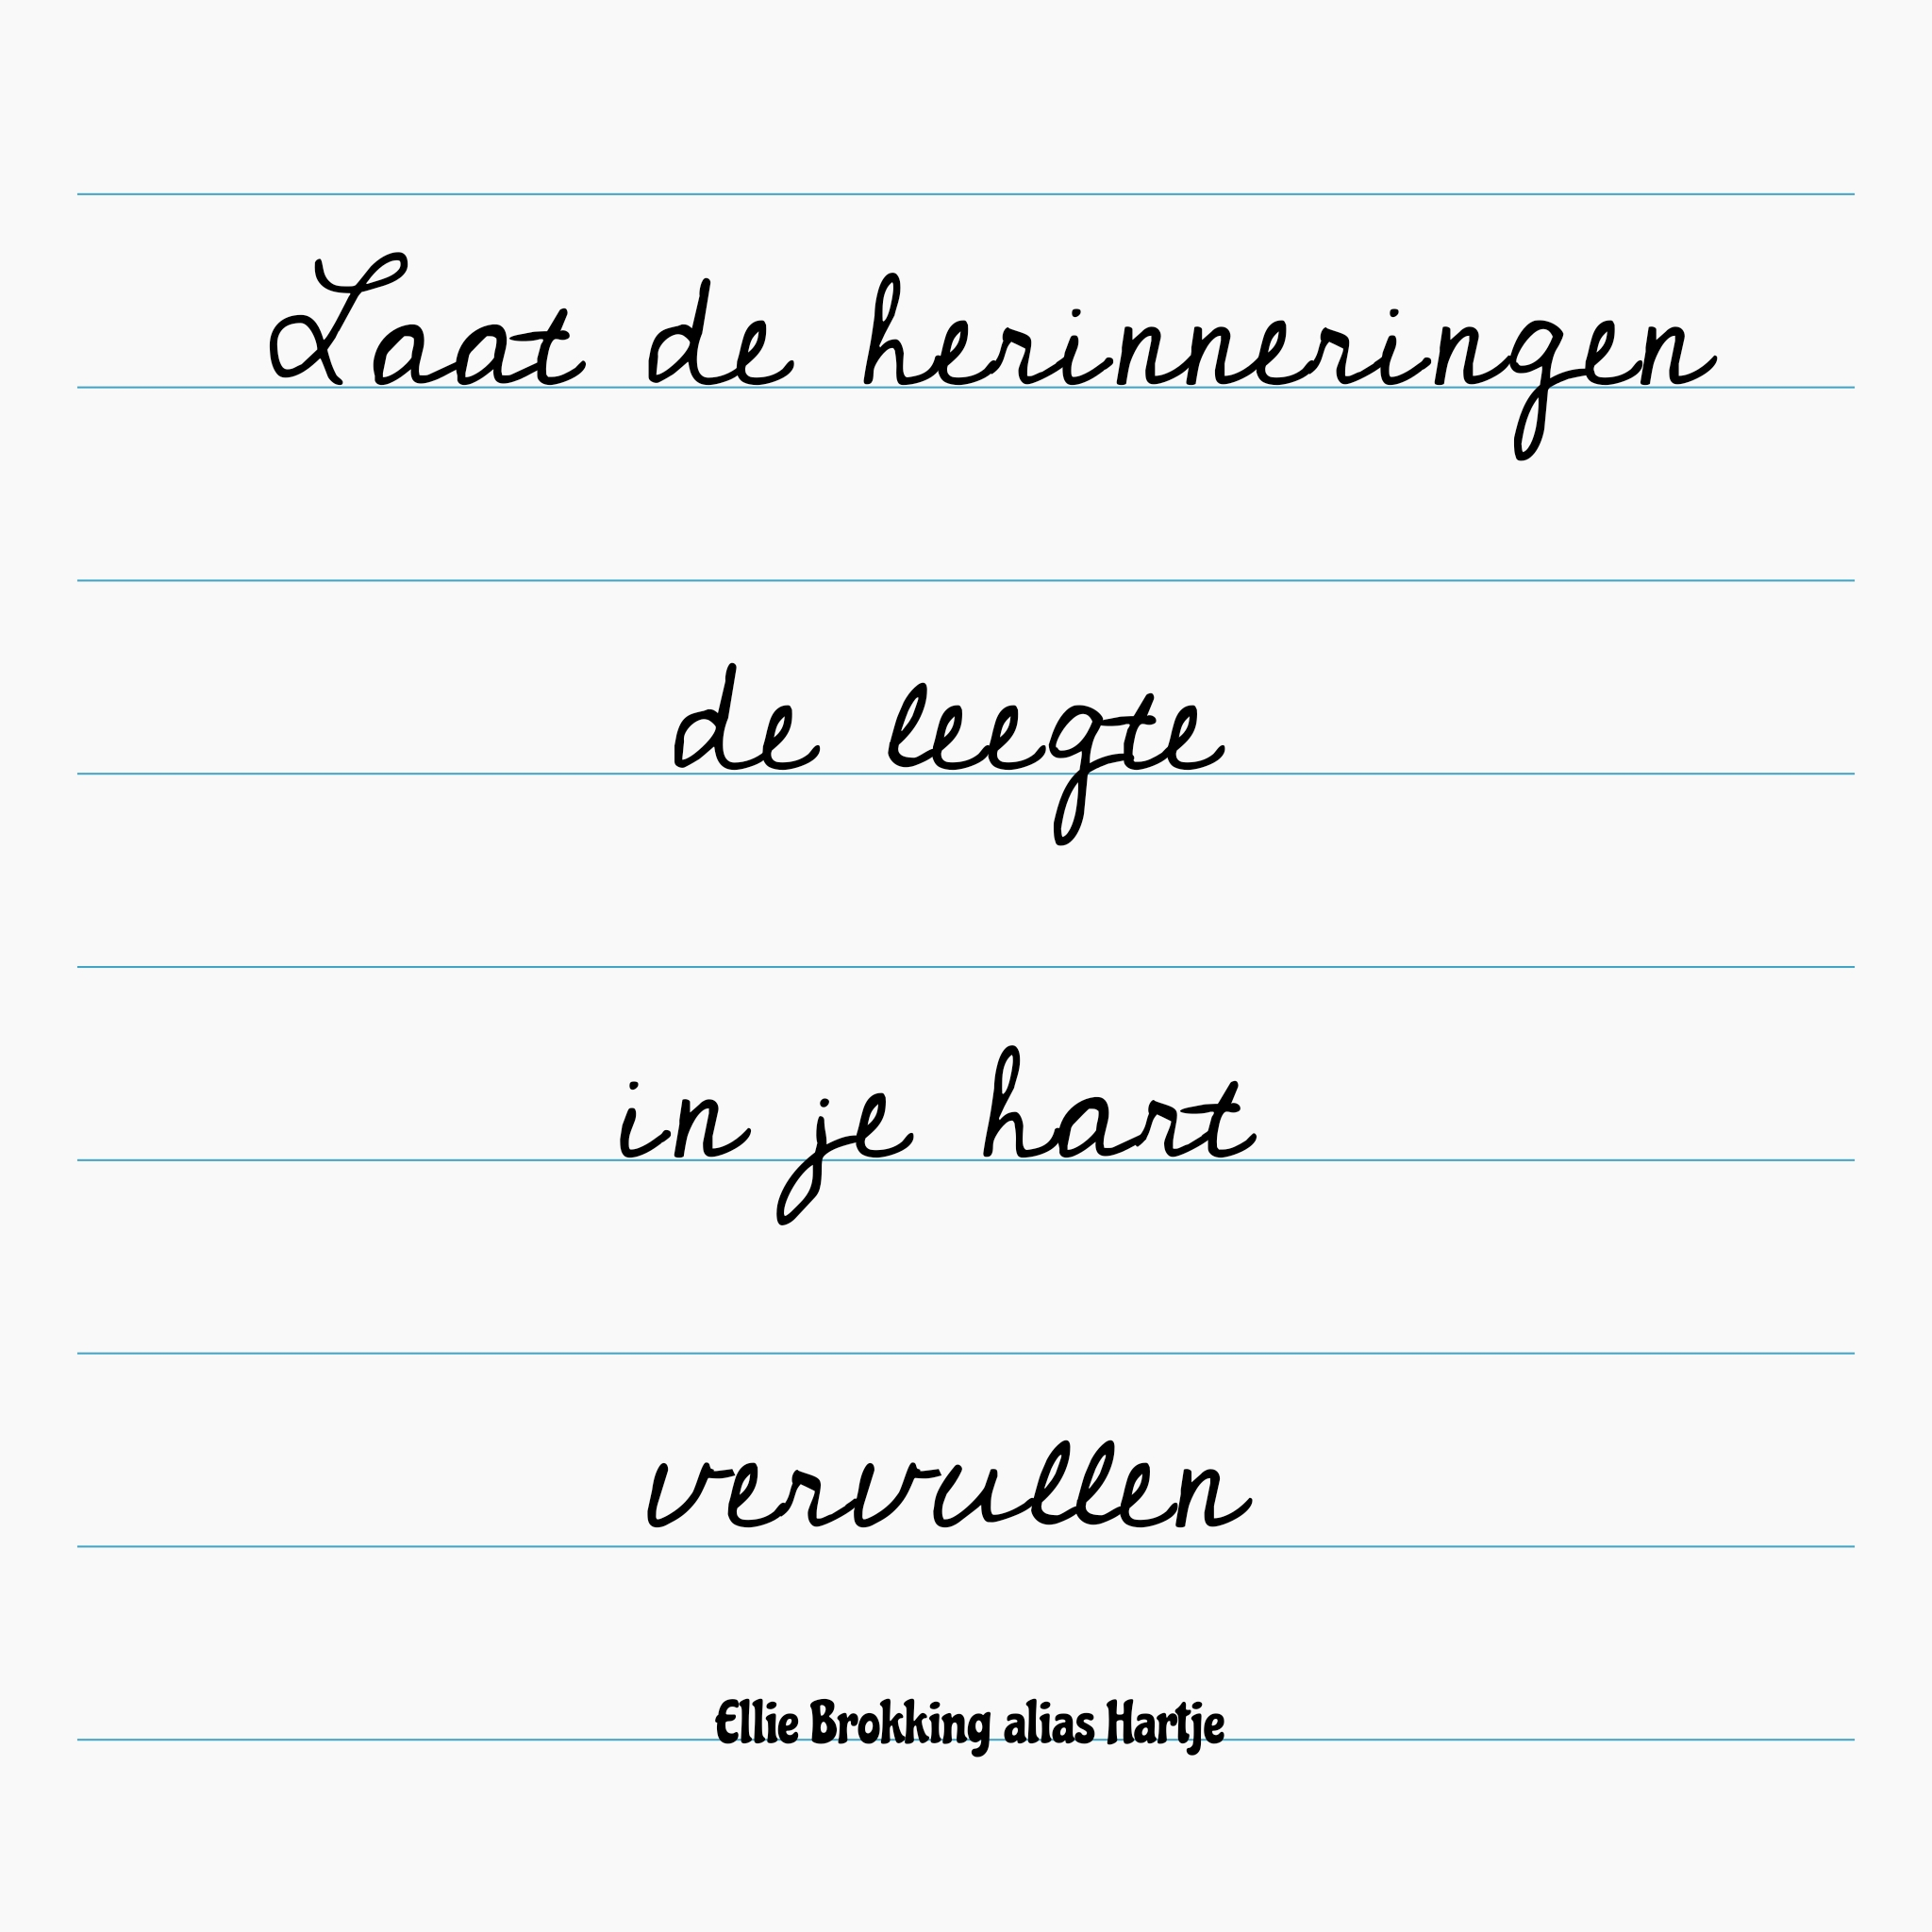 Laat de herinneringen
de leegte
in je hart
vervullen
Ellie Brokking alias Hartje